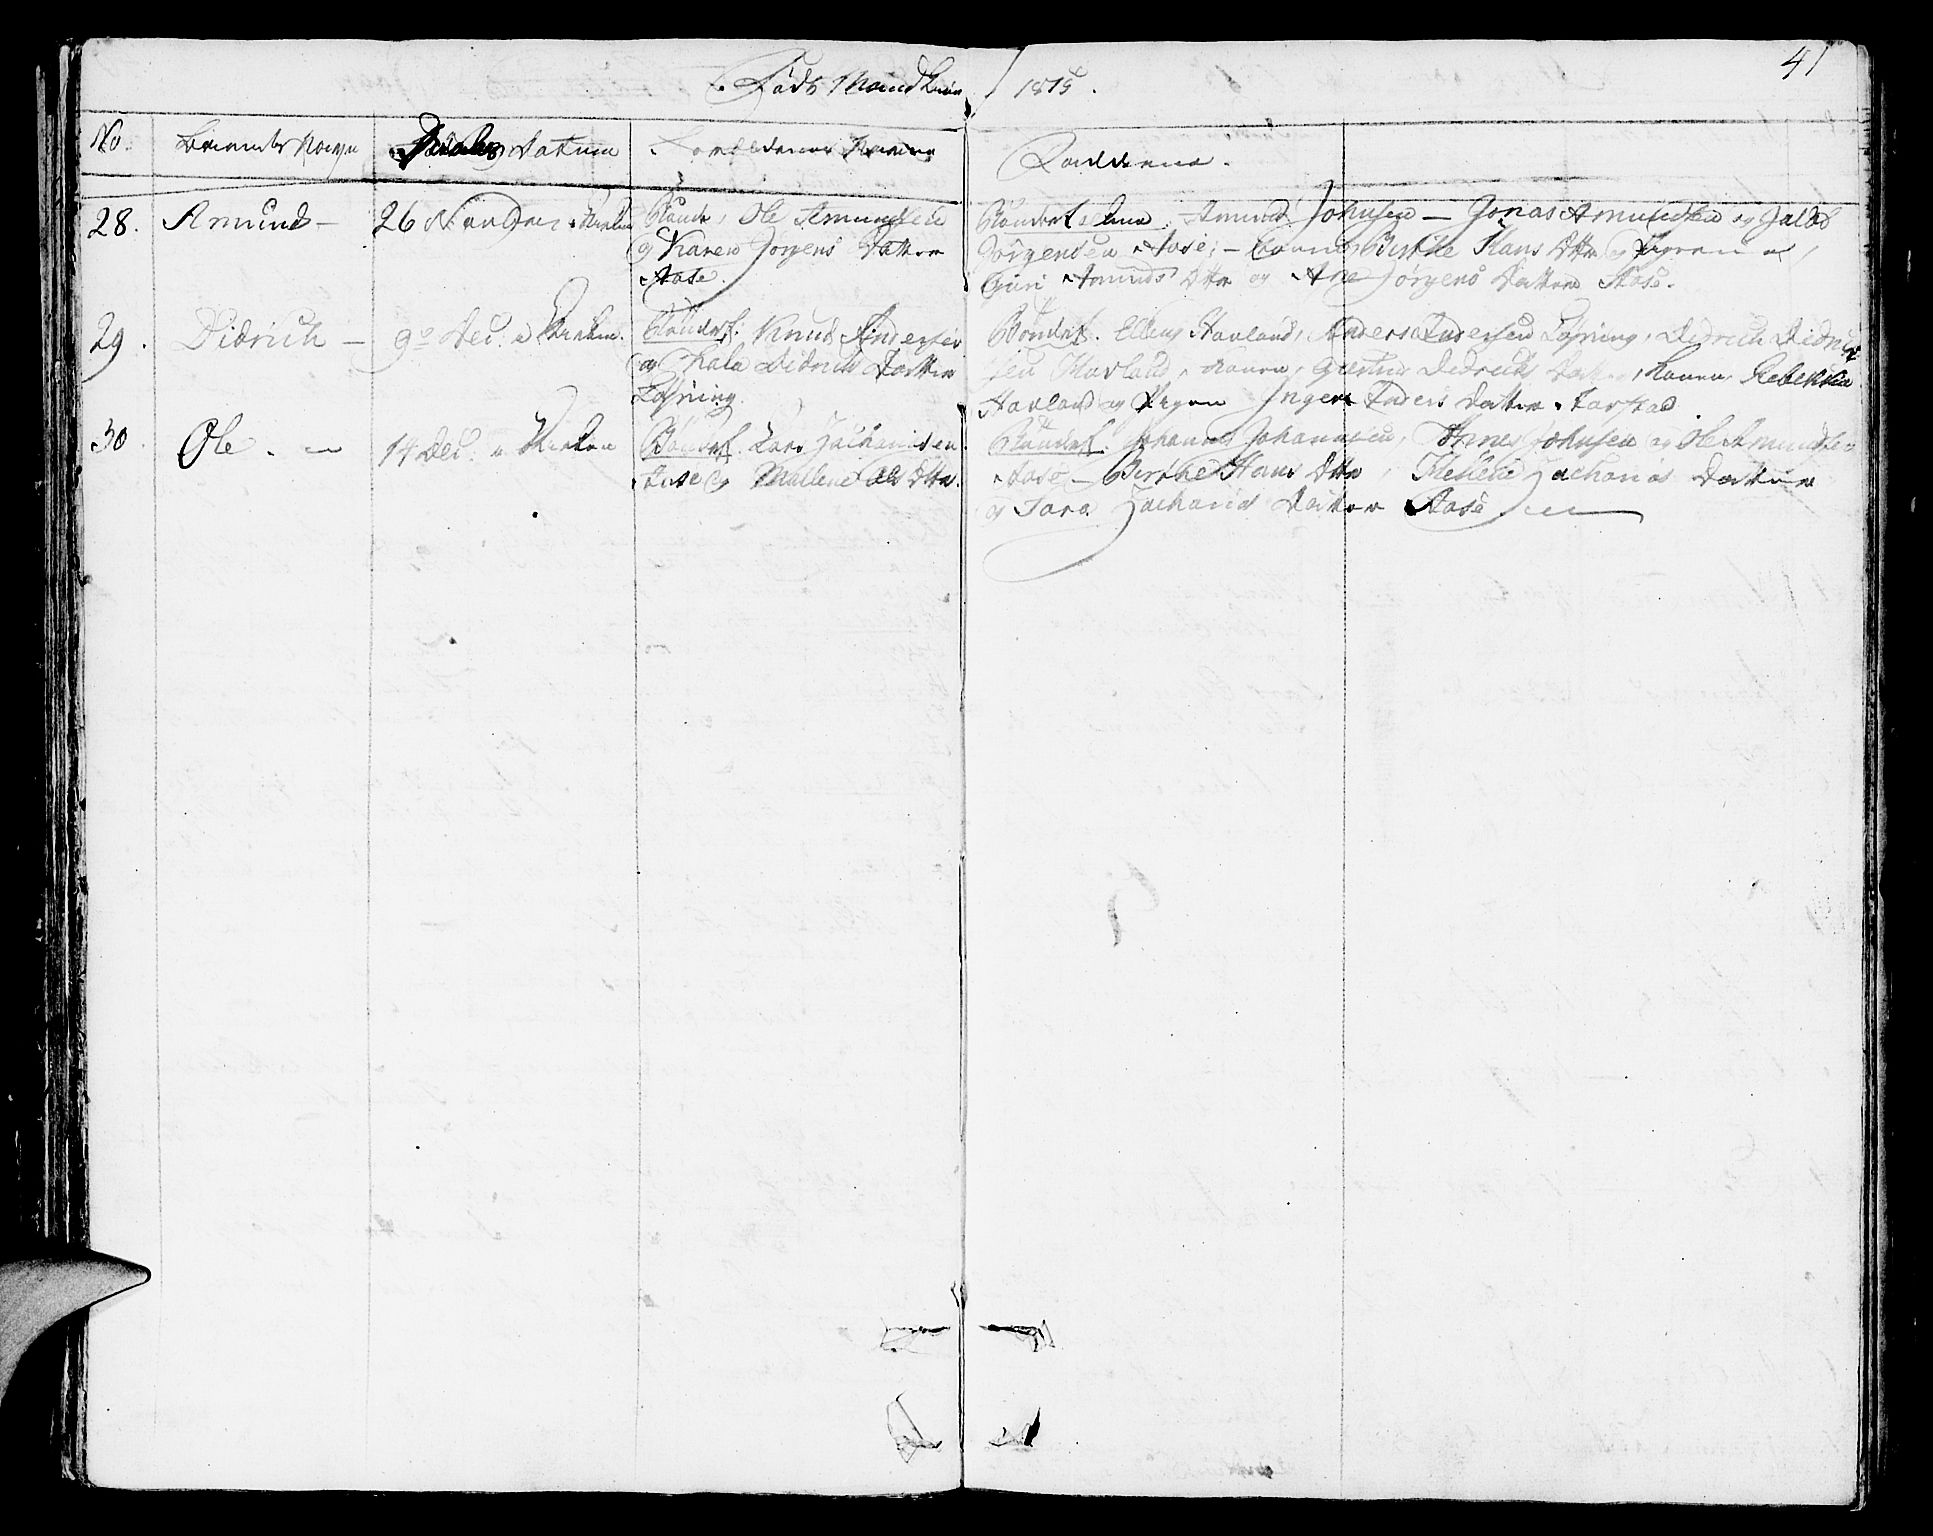 41
Födte Mandkiön 1815.
No. Barnets Navn Daabs Datum Forældrenes Navne Faddere.
28. Amund — 26 Novbr i Kirken
Bonde, Ole Amundsen
og Karen Jörgens Datter
Aase.
Amund Johnsen — Jonas Amundsen og Jacob
Jörgensen Aase; — Konen Birthe Hans Dttr og Pigerne
Guri Amunds Dttr og Ane Jörgens Datter Aase.
29. Didrich — 9de Dec. i Kirken.
Bondef. Knud Andersen
og Didrichs Datter
Löyning.
Bondef. Elling Havland, Anders Andersen Löyning, Didrich Didrich
sen Havland, Konen Giertrud Didrichs Datter, Konen Rebekka
Havland og Pigen Inger Anders Datter
30. Ole. — 14 Dec. i Kirken
Bondef. Lars Zachariasen
Aase og Mallene Ols Dttr.
Bondef. Johannes Johannesen, Johnsen og Ole Amundsen
Aase — Birthe Hans Dttr, Zacharias Datter
og Sara Zacharias Datter Aase